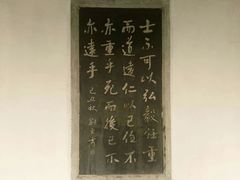 士不可以弘毅任重
而道遠仁以己任不
亦重乎死而後已不
亦遠乎 己丑秋 劉